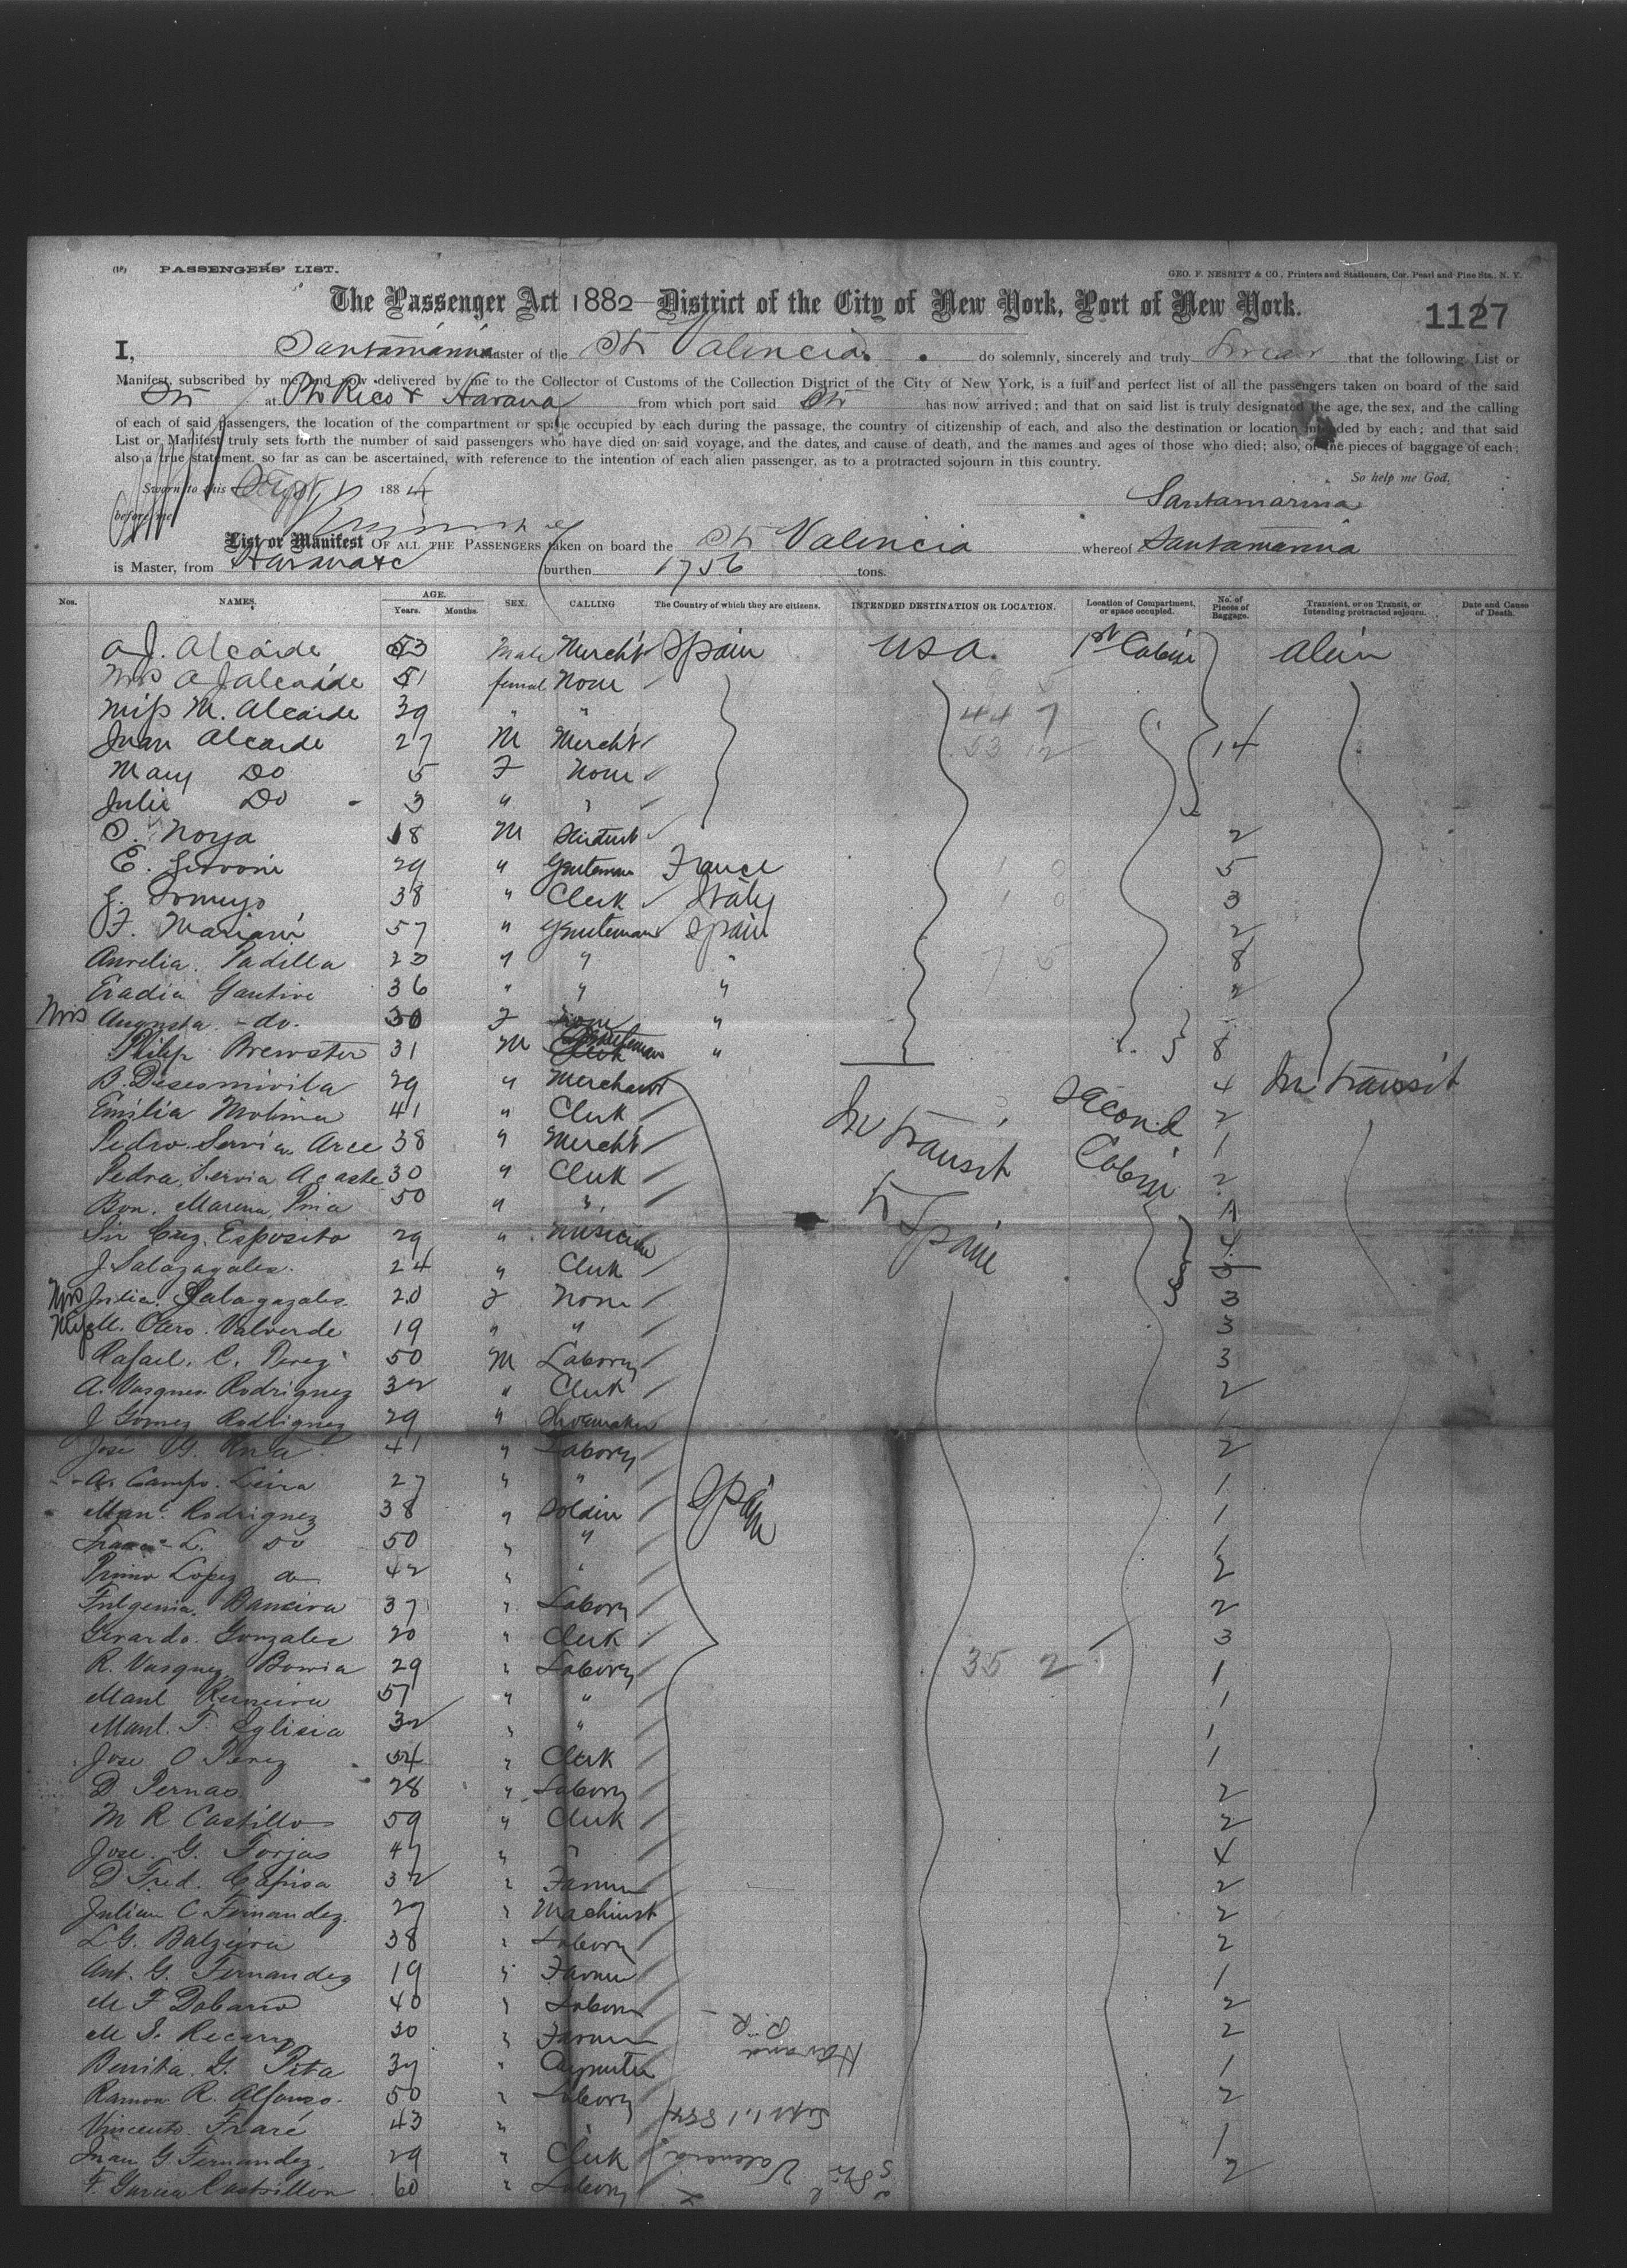 (19) PASSENGERS' LIST.
GEO. F. NESBITT & CO., Printers and Stationers, Cor. Pearl and Pine Sts., N. Y.
The Passenger Act 1882 District of the City of New York, Port of New York.
1127
I, Santamarina Master of the Str Valencia do solemnly, sincerely and truly swear that the following List or
Manifest, subscribed by me and now delivered by me to the Collector of Customs of the Collection District of the City of New York, is a full and perfect list of all the passengers taken on board of the said
Str at Pto Rico & Havana from which port said Str has now arrived; and that on said list is truly designated the age, the sex, and the calling
of each of said passengers, the location of the compartment or space occupied by each during the passage, the country of citizenship of each, and also the destination or location intended by each; and that said
List or Manifest truly sets forth the number of said passengers who have died on said voyage, and the dates, and cause of death, and the names and ages of those who died; also, of the pieces of baggage of each;
also a true statement, so far as can be ascertained, with reference to the intention of each alien passenger, as to a protracted sojourn in this country.
So help me God,
Sworn to this Sept 1 1884
Santamarina
before me
List or Manifest OF ALL THE PASSENGERS taken on board the Str Valencia whereof Santamarina
is Master, from Havana &c burthen 1756 tons.
Nos. NAMES. AGE. Years. Months. SEX. CALLING The Country of which they are citizens. INTENDED DESTINATION OR LOCATION. Location of Compartment, or space occupied. No. of Pieces of Baggage. Transient, or on Transit, or Intending protracted sojourn. Date and Cause of Death.
A J. Alcaide 53 Male Mercht Spain USA. 1st Cabin
Mrs A J Alcaide 51 femal None
Miss M. Alcaide 39 " " 44 7
Juan Alcaide 27 M Mercht 53 12 14
Mary Do 5 F None
Julie Do 3 " "
S. Noya 18 M 2
E. 29 " Gentleman France 1 0 5
38 " Clerk Italy 1 0 3
F. Mariani 57 " Gentleman Spain 2
Aurelia Padilla 23 " " " 7 5 8
Eradia 36 " " " 2
Mrs Augusta - do. 30 F None "
Philip Brewster 31 M Gentleman " 8
B. 29 " Merchant 4 In transit
Emilia Molina 41 " Clerk In transit to Spain Second Cabin 2
Pedro Servia Arce 38 " Mercht 1
Pedra Servia 30 " Clerk 2
Bon. Marina 50 " "
Esposito 29 " Musician 4
J Salazagales. 24 " Clerk
Mrs Julia. Salagazales. 20 F None 3
M. Claro. Valverde 19 " " 3
Rafael. C. Perez 50 M Labory 3
A. Vasques Rodriguez 32 " Clerk 2
J Gomez Rodriguez 29 " Shoemaker
Jose G. 41 " Labory 2
A. Campo. Leira 27 " " 1
Manl. Rodriguez 38 " Soldier Spain 1
L. Do 50 " " 1
Primo Lopez do 42 " " 2
Fulgenia. 37 " Labory 2
Gerardo. Gonzales 20 " Clerk 3
R. Vasquez 29 " Labory 35 2 1
Manl 57 " " 1
Manl. F. Eglisia 32 " " 1
Jose O Perez 54 " Clerk 1
D Pernas 28 " Labory 2
M R Castillo 59 " Clerk 2
Jose. G. Torjas 47 " " 4
D Fred. 32 " Farmer 2
Julian C Fernandez. 29 " Machinist 2
L G. 38 " Labory 2
Ant. G. Fernandez 19 " Farmer 1
M F 40 " Labory 2
M S. 30 " Farmer 2
Benita G. Pita 37 " Carpenter 1
Ramon R. Alfonso. 50 " Labory 2
Vincento. 43 " " 1
Juan G. Fernandez. 29 " Clerk
F. Garcia Castrillon 60 " Labory 2
Str Valencia
Sept 1. 1884
Havana
P. R.